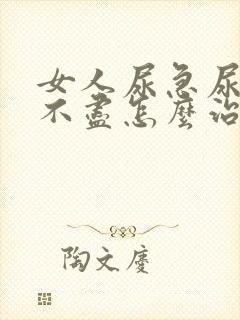 女人尿急尿
不盡怎麼治
陶文慶